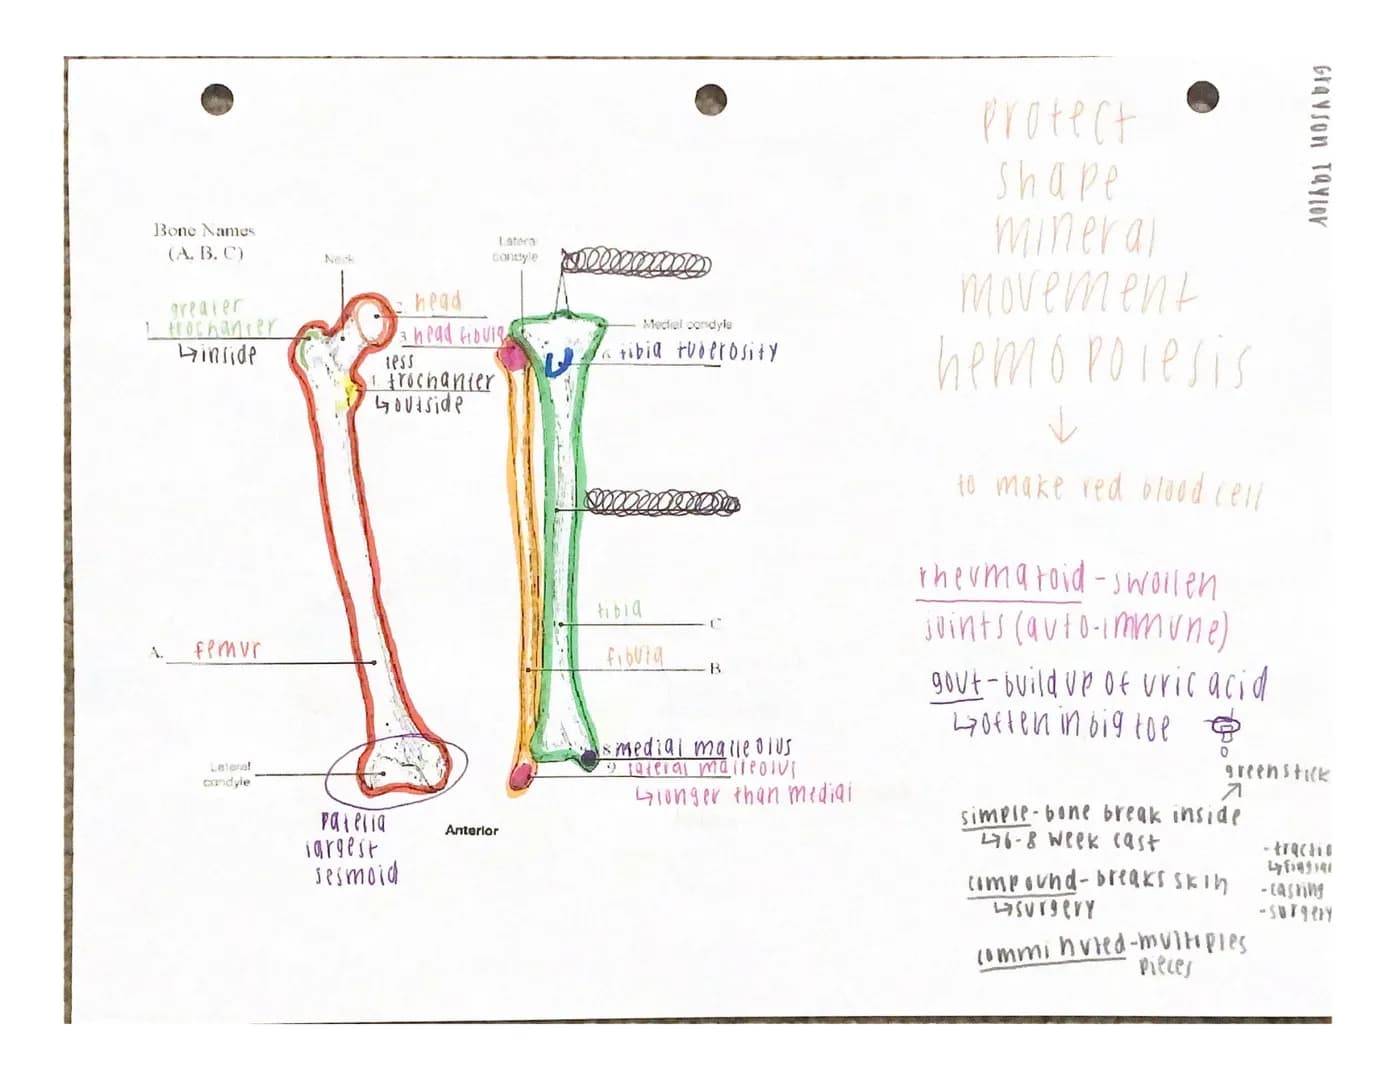 Grayson Taylor
protect
shape
mineral
movement
hemopoiesis
to make red blood cell
Bone Names
(A. B. C)
Neck
Lateral
condyle
greater
1. trochanter
↳inside
2 head
3 head fibula
less
trochanter
↳outside
Medial condyle
tibia tuberosity
tibia
C
fibula
B
A. femur
Lateral
condyle
patella
largest
sesmoid
8 medial malleolus
9 lateral malleolus
↳longer than medial
Anterior
rheumatoid - swollen
joints (auto-immune)
gout - build up of uric acid
↳often in big toe
greenstick
simple - bone break inside
↳6-8 week cast
compound - breaks skin
↳surgery
comminuted - multiples
pieces
-casting
-surgery